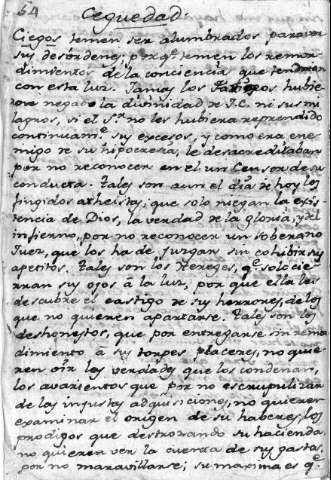 54
Ceguedad.
Ciegos temen ser alumbrados para ver
sus desórdenes; porqe. temen los remor-
dimientos de la conciencia que tendrian
con esta luz. Jamas los hubie-
ron negado la divinidad de J.C. ni sus mi-
lagros, si el Sr. no les hubiera reprendido
continuamte. sus excesos, y como era ene-
migo de su hipocresia, le desacreditaban
por no reconocer en el un Censor de su
conducta. Tales son aun el dia de hoy los
fingidos atheistas; que solo niegan la exis-
tencia de Dios, la verdad de la gloria, y del
infierno, por no reconocer un soberano
Juez, que los ha de juzgar sin cohibir sus
apetitos. Tales son los Hereges, qe. solo cie-
rran sus ojos à la luz, por que ella les
descubre el castigo de sus herrores, de los
que no quieren apartarse. Tales son los
deshonestos, que por entregarse sin remor-
dimiento à sus torpes placeres, no quie-
ren oir las verdades que los condenan,
los avarientos que por no escrupulizar
de las injustas adquisiciones, no quieren
examinar el origen de su haberes, los
prodigos que destrozando su hacienda
no quieren ver la cuenta de sus gastos,
por no maravillarse; su maxima es qe.